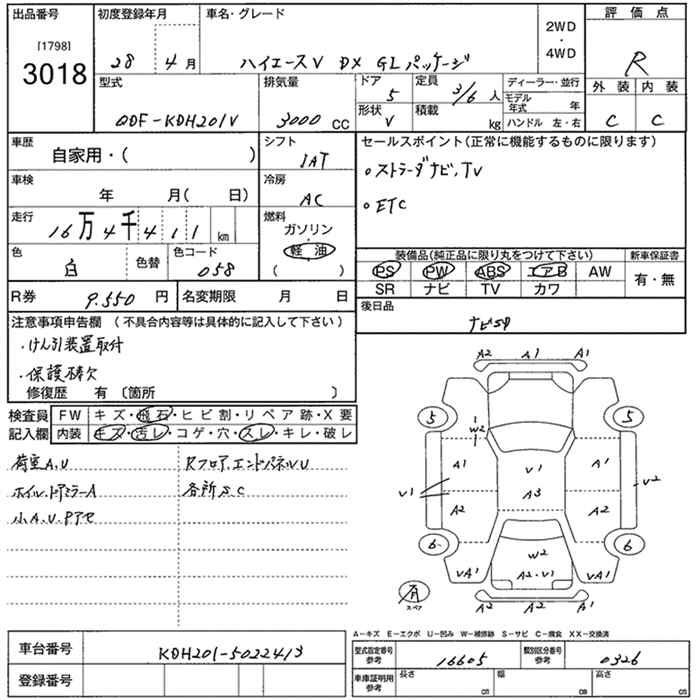 出品番号
[1798]
3018
初度登録年月
28 年 4 月
車名・グレード
ハイエースV DX GLパッケージ
2WD
・
4WD
評価点
R
外装 内装
C C
型式
QDF-KDH201V
排気量
3000 CC
ドア
5
定員
3/6 人
形状
V
積載
kg
ディーラー・並行
モデル年式 年
ハンドル 左・右
車歴
自家用・( )
シフト
IAT
車検
年 月( 日)
冷房
AC
走行
16万4千411 km
燃料
ガソリン
軽油
( )
色
白
色替
色コード
058
R券 9.550 円
名変期限 月 日
セールスポイント(正常に機能するものに限ります)
。ストラーダナビ,TV
。ETC
装備品(純正品に限り丸をつけて下さい)
新車保証書
PS PW ABS エアB AW
SR ナビ TV カワ
有・無
後日品
ナビSD
注意事項申告欄 (不具合内容等は具体的に記入して下さい)
・けん引装置取付
・保護磅欠
修復歴 有 〔箇所 〕
検査員
記入欄
FW キズ・飛石・ヒビ割・リペア跡・X要
内装 キズ・汚レ・コゲ・穴・スレ・キレ・破レ
荷室A,U
ホイル,ドアミラーA
小A,U,Pアセ
Rフロア,エンドパネルVU
各所SC
A2 A1 A1
5 5
W2
A1 V1 A1
V1 A3 V2
A2 A2
6 6
W2
VA1 A2・V1 VA1
有
スペア
A2 A2 A2
A-キズ E-エクボ U-凹み W-補修跡 S-サビ C-腐食 XX-交換済
車台番号 KDH201-5022413
登録番号
型式指定番号
参考
16605
類別区分番号
参考
0326
車庫証明用
参考
長さ cm
幅 cm
高さ cm